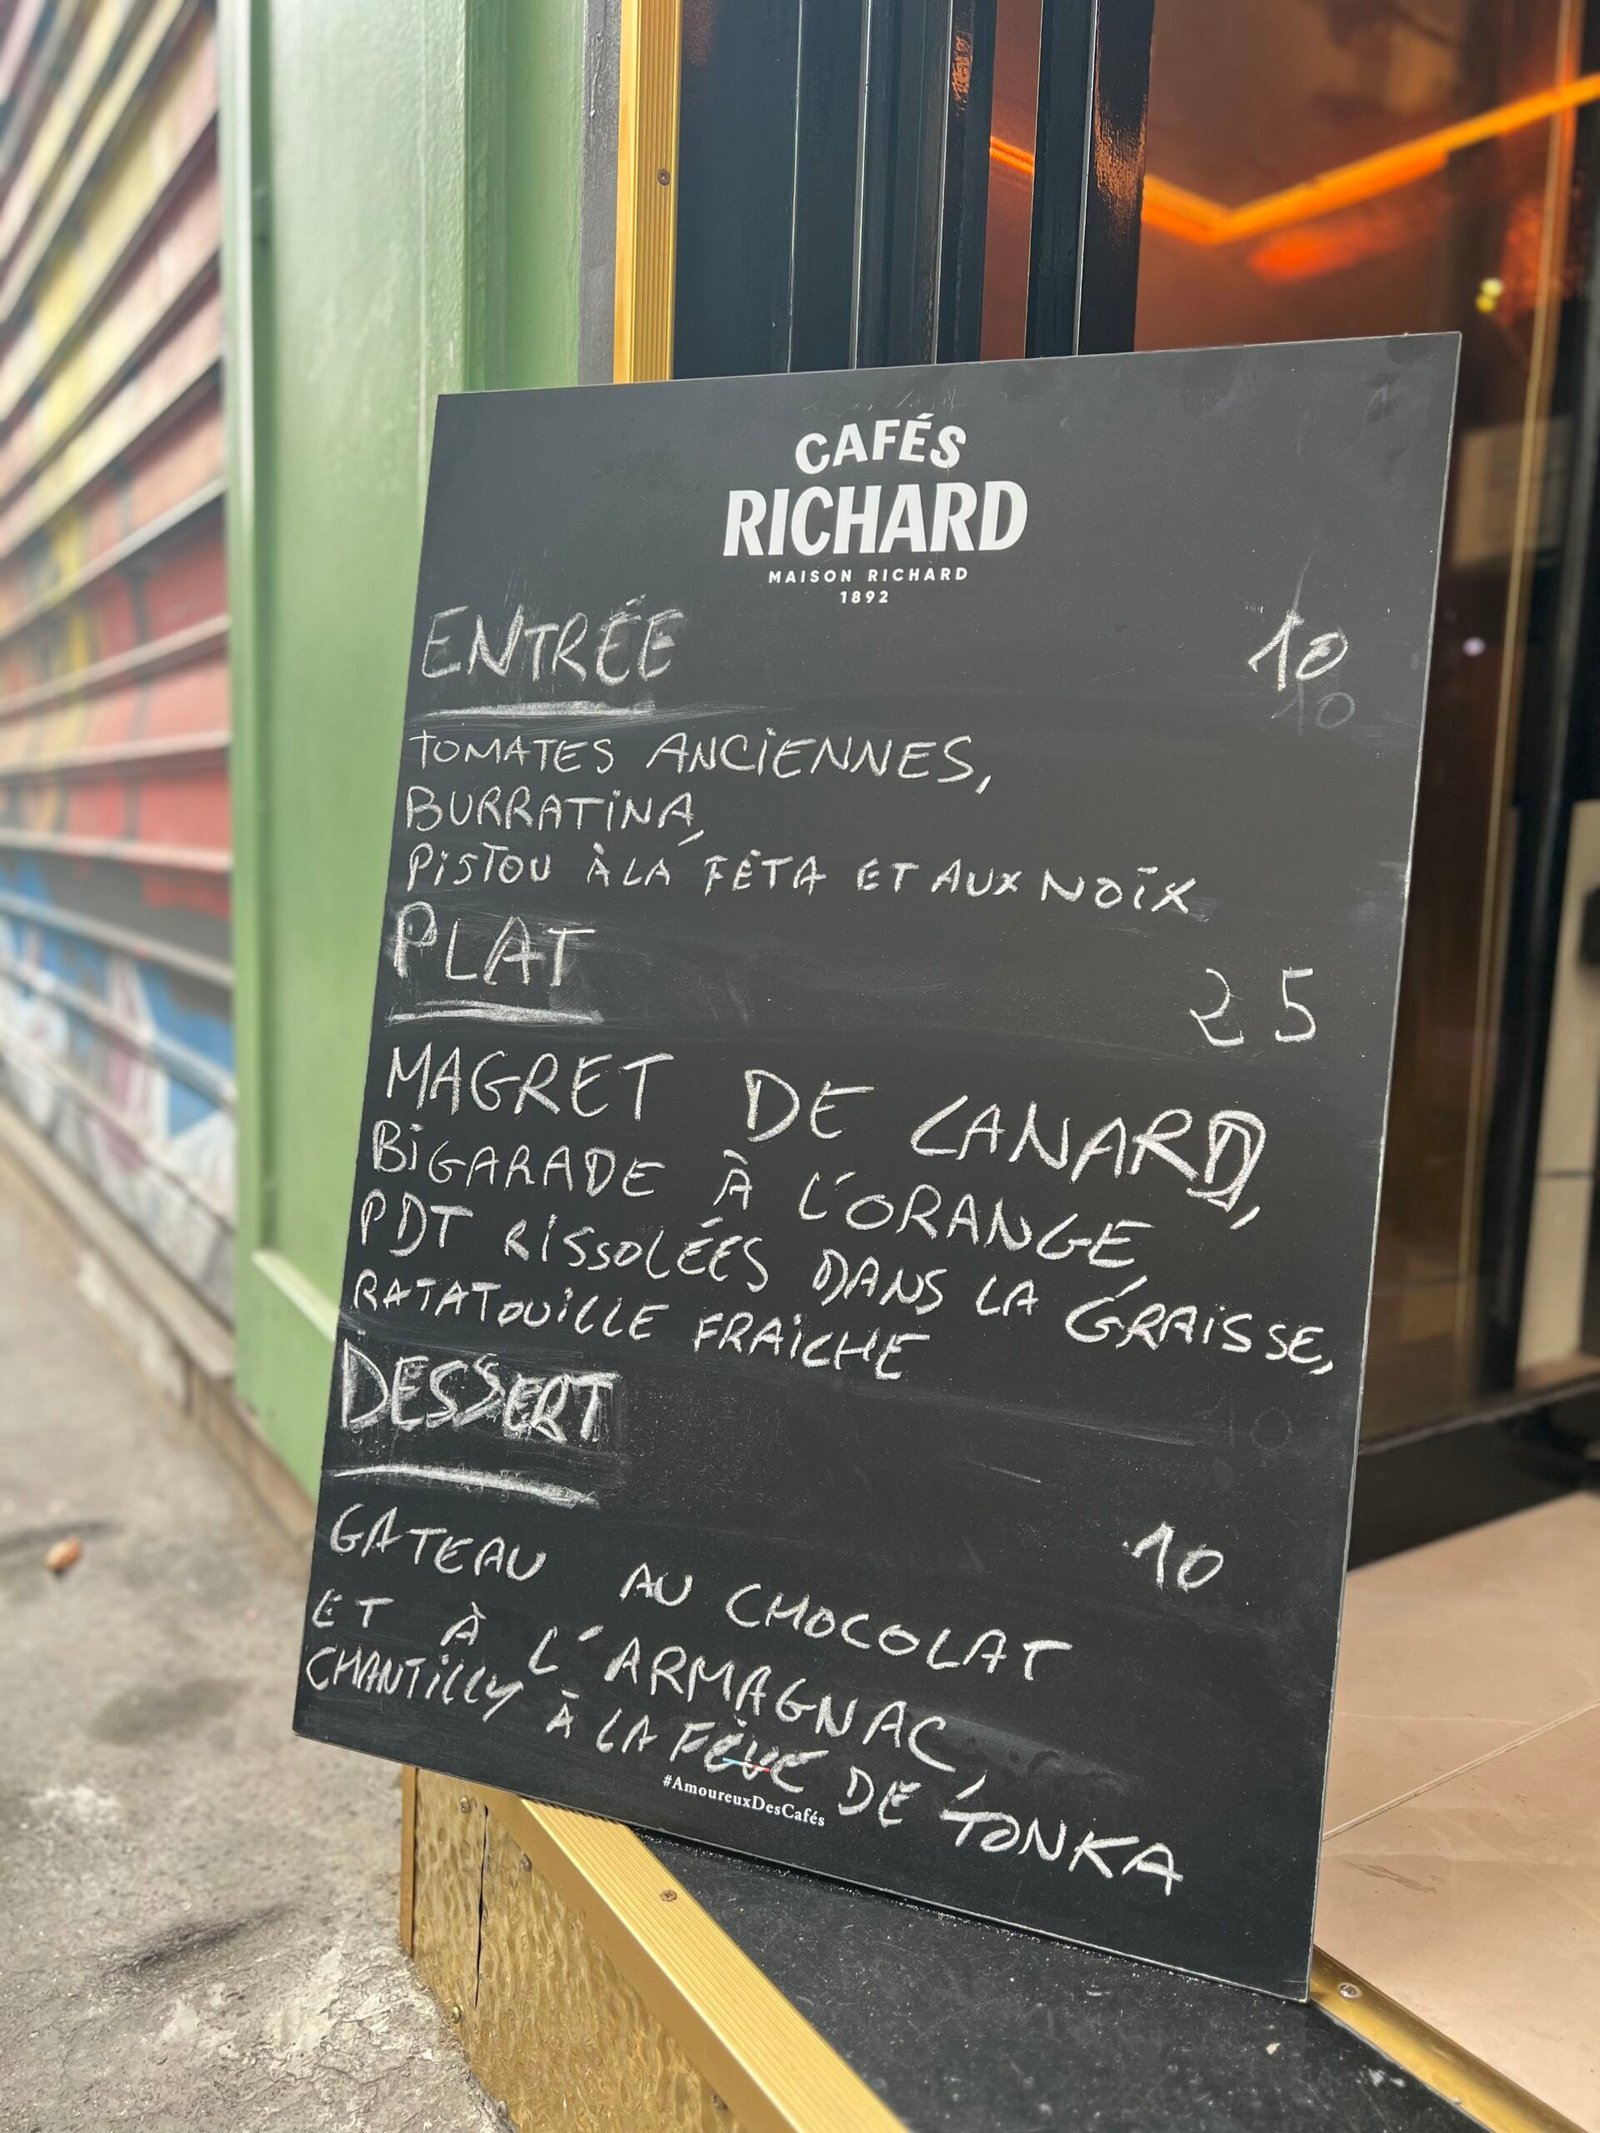 CAFÉS
RICHARD
MAISON RICHARD
1892
ENTRÉE 10
10
TOMATES ANCIENNES,
BURRATINA,
PISTOU À LA FÉTA ET AUX NOIX
PLAT 25
MAGRET DE CANARD,
BIGARADE À L'ORANGE,
PDT RISSOLÉES DANS LA GRAISSE,
RATATOUILLE FRAICHE
DESSERT
10
GATEAU AU CHOCOLAT
ET À L'ARMAGNAC,
CHANTILLY À LA FÈVE DE TONKA
#AmoureuxDesCafés